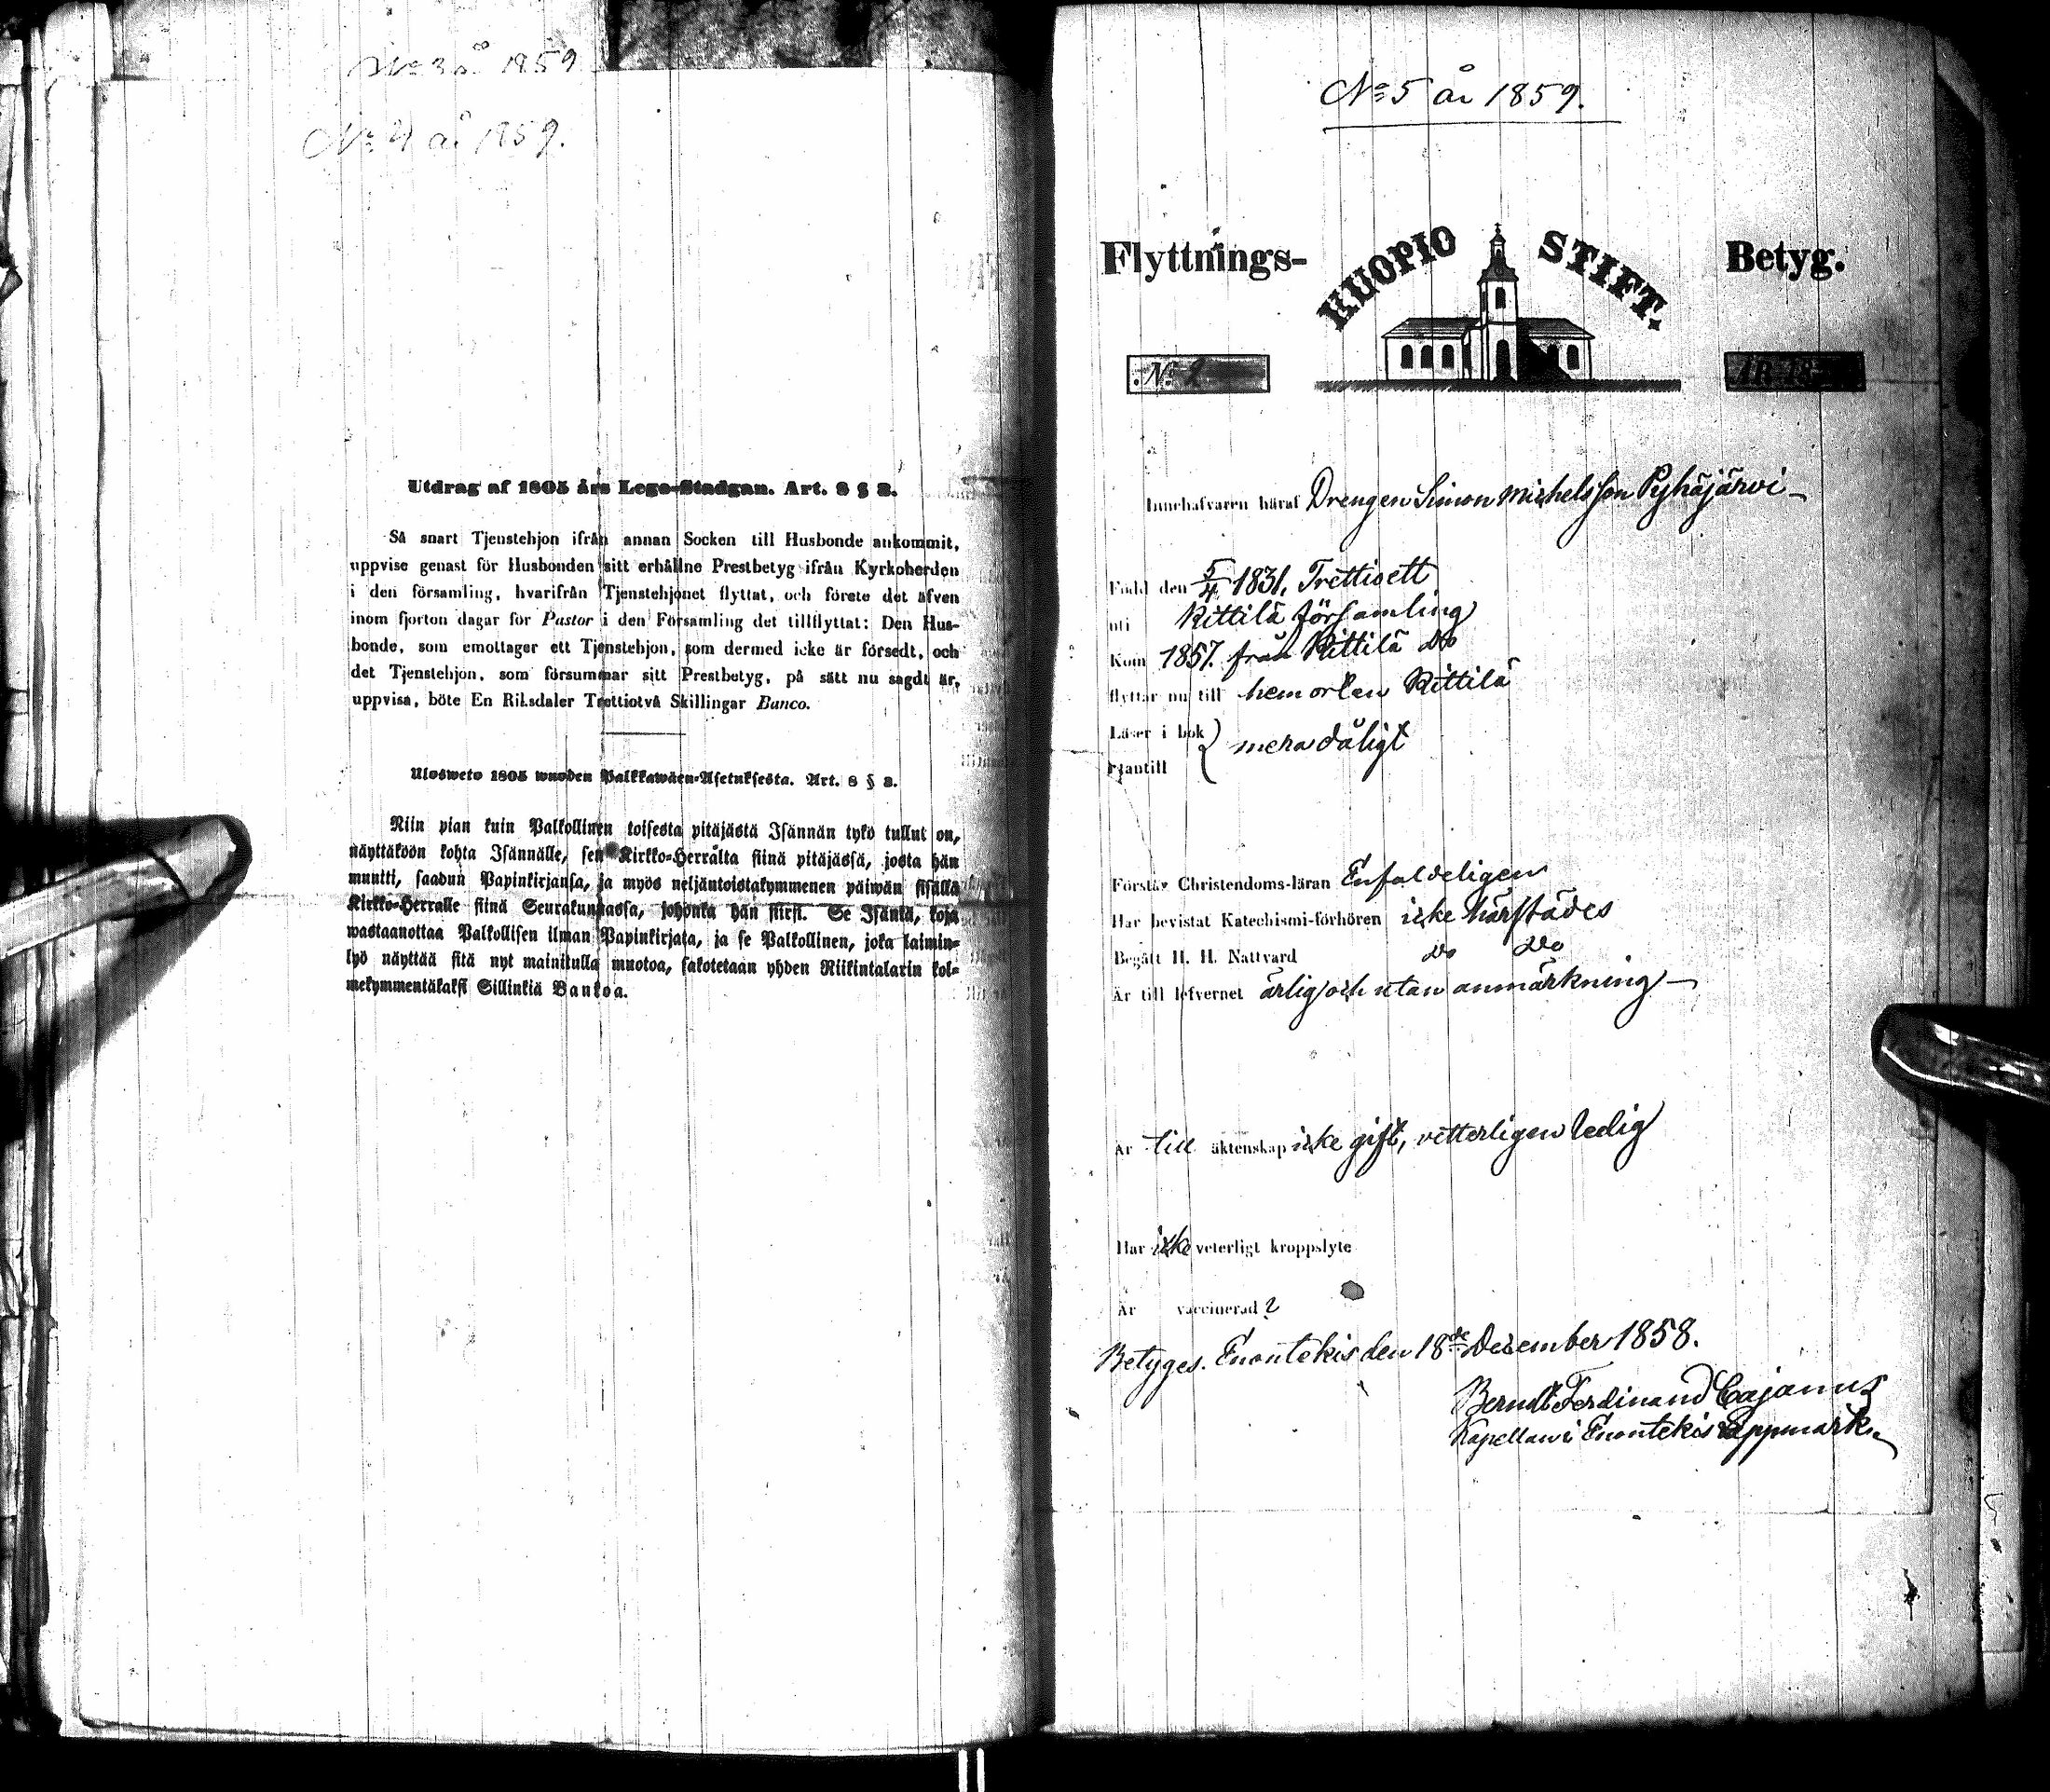 No 3 år 1859
No 4 år 1859.
Utdrag af 1805 års Lego-Stadgan. Art. 8 § 2.
Så snart Tjenstehjon ifrån annan Socken till Husbonde ankommit,
uppvise genast för Husbonden sitt erhållne Prestbetyg ifrån Kyrkoherden
i den församling, hvarifrån Tjenstehjonet flyttat, och förete det äfven
inom fjorton dagar för Pastor i den Församling det tillflyttat: Den Hus-
bonde, som emottager ett Tjenstehjon, som dermed icke är försedt, och
det Tjenstehjon, som försummar sitt Prestbetyg, på sätt nu sagdt är,
uppvisa, böte En Riksdaler Trettiotvå Skillingar Banco.
Ulosweto 1805 wuoden Palkkawäen-Asetuksesta. Art. 8 § 2.
Niin pian kuin Palkollinen toisesta pitäjästä Isännän tykö tullut on,
näyttäköön kohta Isännälle, sen Kirkko-Herralta siinä pitäjässä, josta hän
muutti, saadun Papinkirjansa, ja myös neljäntoistakymmenen päiwän sisällä
Kirkko-Herralle siinä Seurakunnassa, johonka hän siirsi. Se Isäntä, koja
wastaanottaa Palkollisen ilman Papinkirjata, ja se Palkollinen, joka laimin-
lyö näyttää sitä nyt mainitulla muotoa, sakotetaan yhden Riikintalarin kol-
mekymmentäkaksi Sillinkiä Bankoa.
No 5 år 1859.
Flyttnings- KUOPIO STIFT. Betyg.
No 2 ÅR 18
Innehafvaren häraf Drengen Simon Michelsson Pyhäjärvi
Född den 5/4 1831, Trettioett
uti Kittilä församling
Kom 1857. från Kittilä do
flyttar nu till hemorten Kittilä
Läser i bok
utantill } mera dåligt
Förstår Christendoms-läran Enfaldeligen
Har bevistat Katechismi-förhören icke härstädes
Begått H. H. Nattvard do do
Är till lefvernet ärlig och utan anmärkning
Är till äktenskap icke gift, vetterligen ledig
Har icke veterligt kroppslyte
Är vaccinerad ?
Betyges. Enontekis den 18de December 1858.
Berndt Ferdinand Cajanus
Kapellan i Enontekis Lappmark.